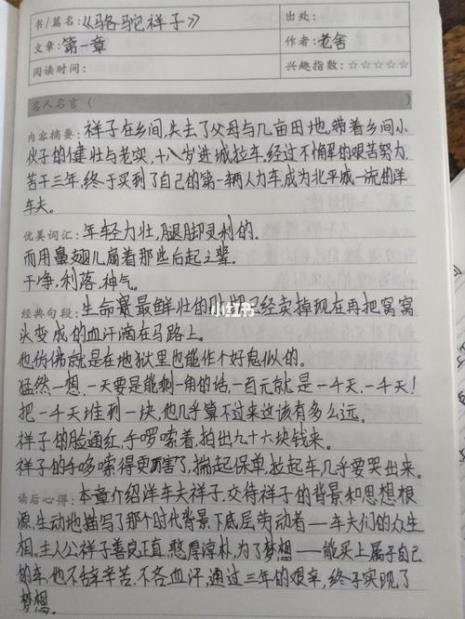 书/篇名:《骆驼祥子》
出处:
文章:第一章
作者:老舍
阅读时间:
兴趣指数:☆☆☆☆☆
名人名言(                    )
内容摘要:祥子在乡间,失去了父母与几亩田地,带着乡间小
伙子的健壮与老实,十八岁进城拉车,经过不懈的艰苦努力
苦干三年,终于买到了自己的第一辆人力车,成为北平城一流的洋
车夫。
优美词汇:年轻力壮,腿脚灵利的.
而用鼻翅儿扇着那些后起之辈.
干净,利落,神气。
经典句段:生命最鲜壮的时期已经卖掉现在再把窝窝
头变成的血汗滴在马路上。
也仿佛就是在地狱里也能作个好鬼似的.
猛然一想,一天要是能剩一角的话,一百元就是一千天,一千天!
把一千天堆到一块,他几乎算不过来这该有多么远.
祥子的脸通红,手哆嗦着,拍出九十六块钱来.
祥子的手哆嗦得更厉害了,揣起保单,拉起车,几乎要哭出来.
读后心得:本章介绍洋车夫祥子,交待祥子的背景和思想根
源,生动地描写了那个时代背景下底层劳动者——车夫们的众生
相.主人公祥子善良正直,憨厚淳朴,为了梦想——能买上属于自己
的车,他不辞辛苦,不吝血汗,通过三年的艰辛,终于实现了
梦想.
小红书